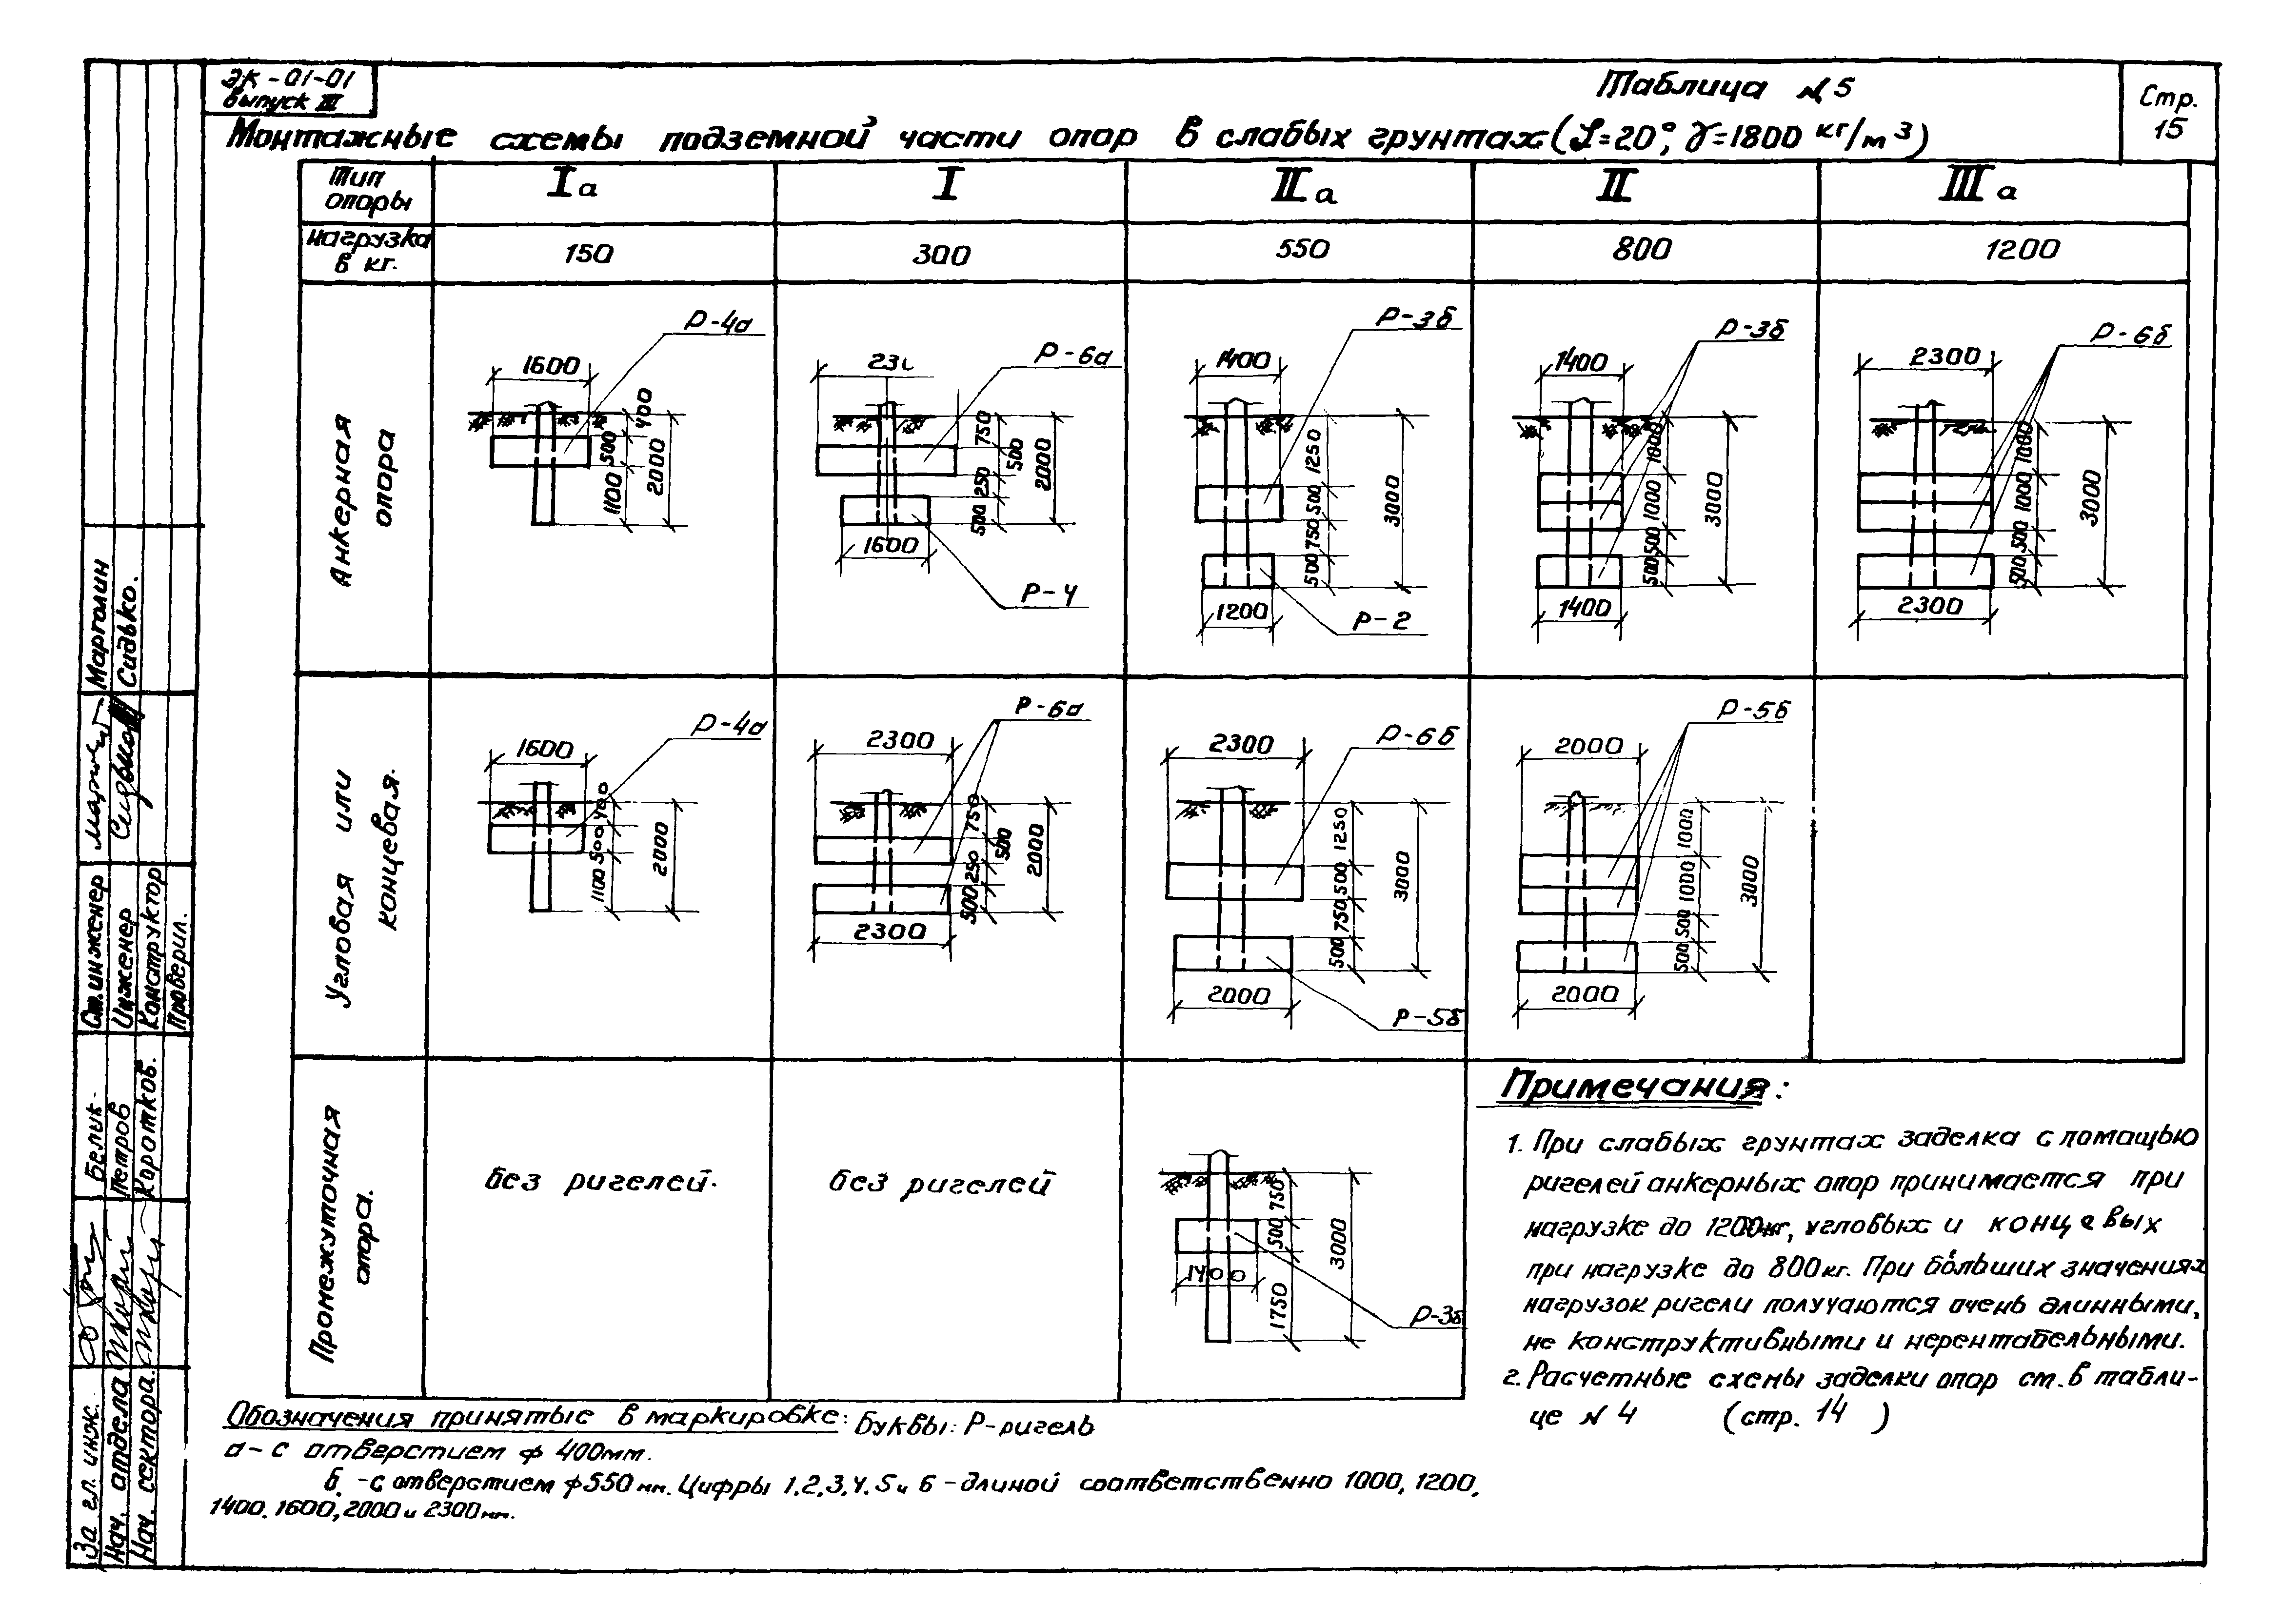 ЭК-01-01
Выпуск III
Таблица N 5
Стр.
15
Монтажные схемы подземной части опор в слабых грунтах (φ=20°, γ=1800 кг/м3)
Тип
опоры
Iа
I
IIа
II
IIIа
Нагрузка
в кг.
150
300
550
800
1200
Анкерная
опора
Р-4а
1600
400
500
1100
2000
Р-6а
750
500
250
500
2000
1600
Р-4
Р-3б
1400
1250
500
750
500
3000
1200
Р-2
Р-3б
1400
1000
1000
500
500
3000
1400
Р-6б
2300
1000
1000
500
500
3000
2300
Угловая или
концевая.
Р-4а
1600
400
500
1100
2000
Р-6а
2300
750
500
250
500
2000
2300
Р-6б
2300
1250
500
750
500
3000
2000
Р-5б
Р-5б
2000
1000
1000
500
500
3000
2000
Промежуточная
опора.
без ригелей.
без ригелей
750
500
1750
3000
1400
Р-3б
Примечания:
1. При слабых грунтах заделка с помощью
ригелей анкерных опор принимается при
нагрузке до 1200кг, угловых и концевых
при нагрузке до 800кг. При больших значениях
нагрузок ригели получаются очень длинными,
не конструктивными и нерентабельными.
2. Расчетные схемы заделки опор см. в табли-
це N 4 (стр. 14)
Обозначения принятые в маркировке: Буквы: Р-ригель
а- с отверстием ф 400мм.
б. -с отверстием ф550мм. Цифры 1,2,3,4,5 и 6 -длиной соответственно 1000, 1200,
1400, 1600, 2000 и 2300мм.
Марголин
Сидько.
Ст. инженер
Инженер
Конструктор
Проверил.
Белик-
Петров
Коротков.
За гл. инж.
Нач. отдела
Нач. сектора